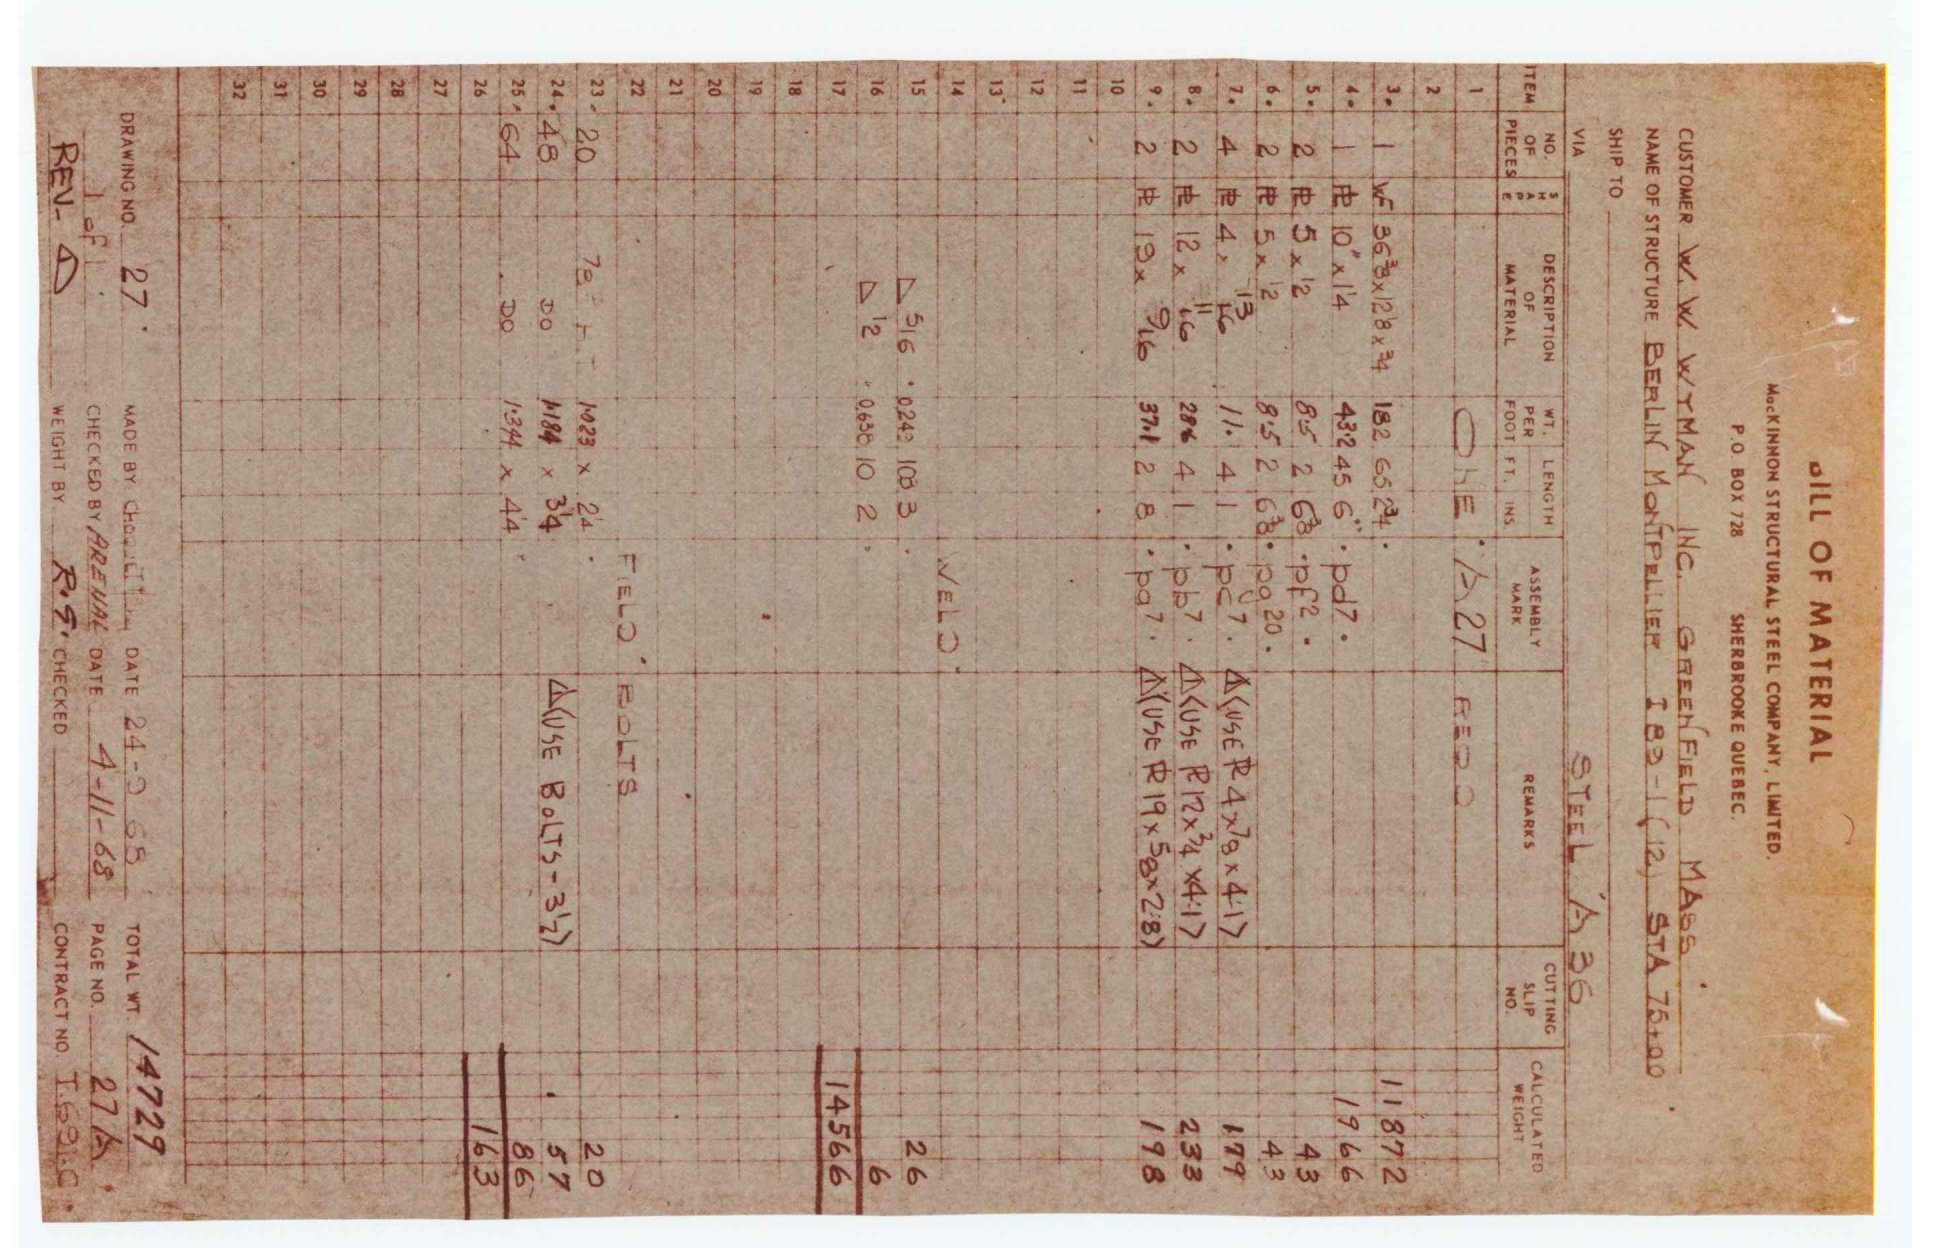 BILL OF MATERIAL
MacKINNON STRUCTURAL STEEL COMPANY, LIMITED.
P.O. BOX 728 SHERBROOKE QUEBEC.
CUSTOMER W. W. WYMAN INC. GREENFIELD MASS
NAME OF STRUCTURE BERLIN MONTPELLIER I 89-1(12) STA 75+00
SHIP TO
VIA STEEL A36
ITEM NO. OF PIECES SHAPE DESCRIPTION OF MATERIAL WT. PER FOOT LENGTH FT. INS. ASSEMBLY MARK REMARKS CUTTING SLIP NO. CALCULATED WEIGHT
1 ONE A27 REQD
2
3. 1 WF 36 3/8 x 12 1/8 x 3/4 182 65 2 3/4 11872
4. 1 PL 10" x 1 1/4 43.2 45 6" pd7 1966
5. 2 PL 5 x 1/2 8.5 2 6 3/8 pf2 43
6. 2 PL 5 x 1/2 8.5 2 6 3/8 pg20 43
7. 4 PL 4 x 13/16 11. 4 1 pc7 Δ(USE PL 4 x 7/8 x 4-1) 179
8. 2 PL 12 x 11/16 28.6 4 1 pb7 Δ(USE PL 12 x 3/4 x 4-1) 233
9. 2 PL 19 x 9/16 37.1 2 8 pa7 Δ(USE PL 19 x 5/8 x 2-8) 198
10
11
12
13
14 WELD
15 Δ 5/16 0.249 103 3 26
16 Δ 1/2 0.638 10 2 6
17 14566
18
19
20
21
22 FIELD BOLTS
23. 20 7/8 1.023 x 2 1/4 20
24. 48 DO 1.184 x 3 1/4 Δ(USE BOLTS - 3 1/2) 57
25. 64 DO 1.344 x 4 1/4 86
26 163
27
28
29
30
31
32
DRAWING NO. 27 MADE BY DATE 24-9 68 TOTAL WT 14729
1 of 1 CHECKED BY ARENAL DATE 4-11-68 PAGE NO. 27A
REV- Δ WEIGHT BY R.G. CHECKED CONTRACT NO T.691-C